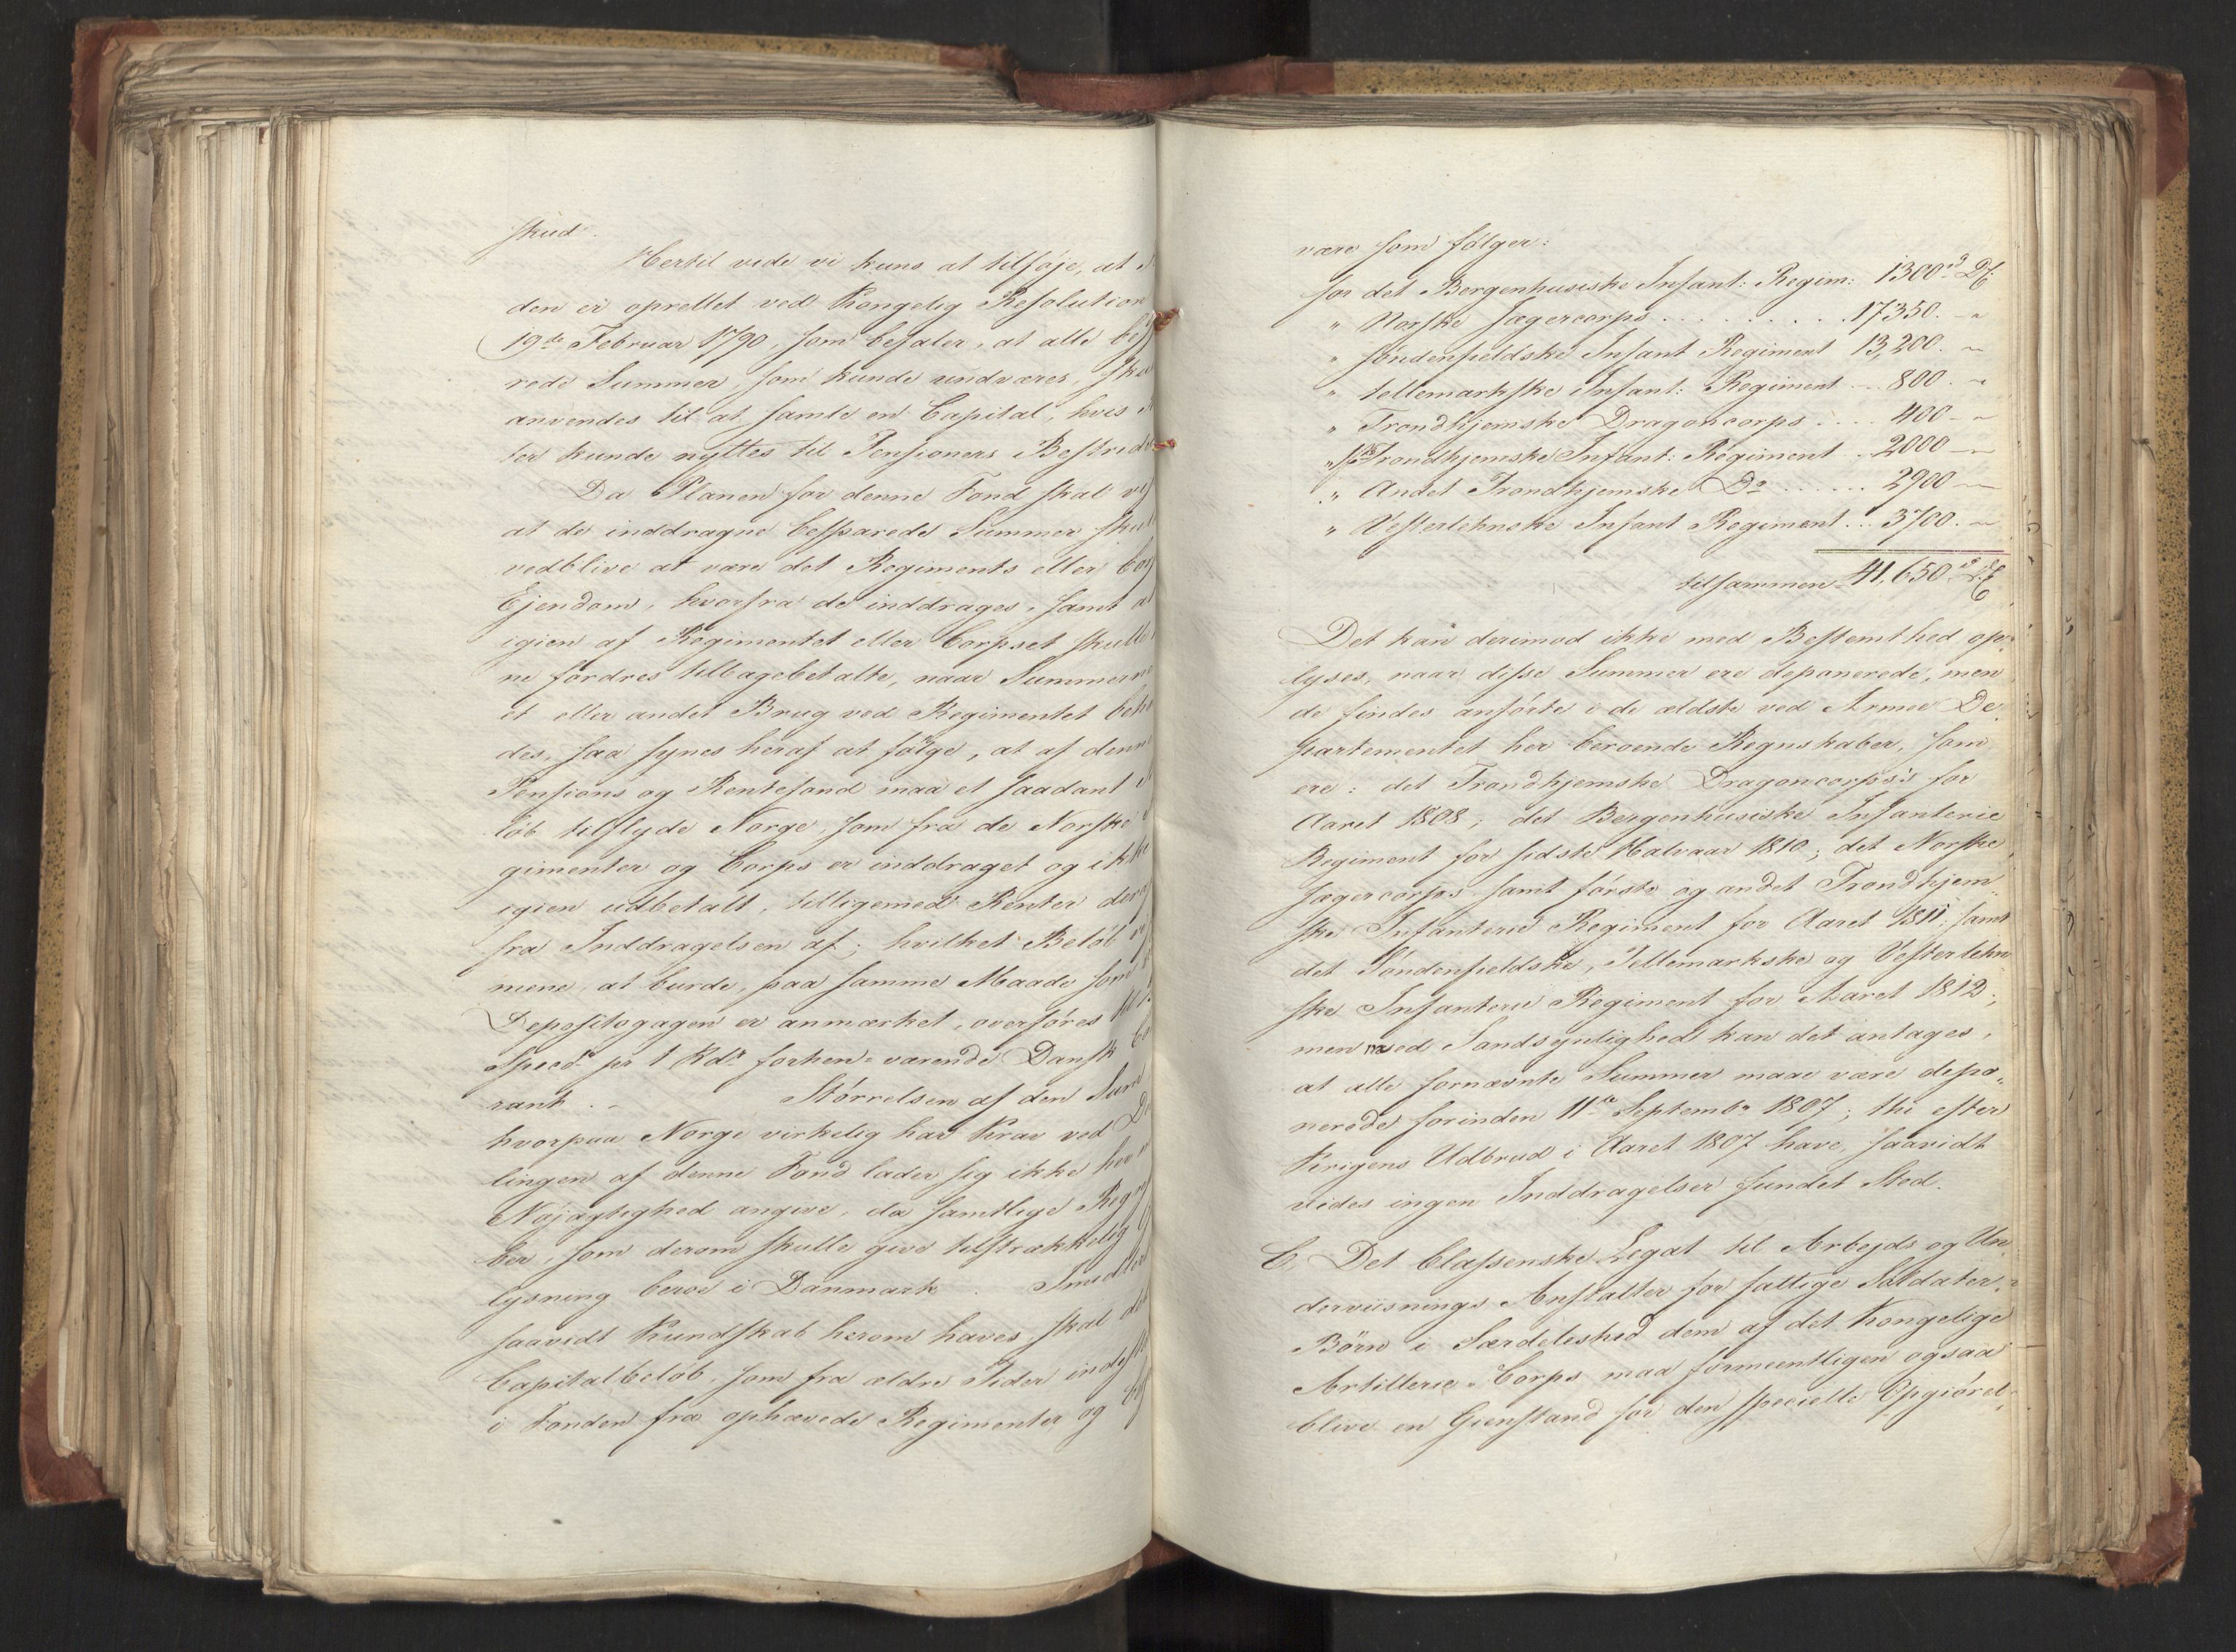 skud.
Hertil vide vi kuns at tilføje, at
den er oprettet ved Kongelig Resolution
19de Februar 1790, som befaler, at alle
rede Summer, som kunde undværes,
anvendes til at samle en Capital, hvis
ter kunde nyttes til Pensioners
Da Planen for denne Fond skal
at de inddragne besparede Summer
vedblive at være det Regiments eller
Ejendom, hvorfra de inddrages, samt
igien af Regimentet eller Corpset
ne fordres tilbagebetalte, naar
et eller andet Brug ved Regimentet
des, saa synes heraf at følge, at af
Pensions og Rentefond maa et saadant
løb tilflyde Norge, som fra de Norske
gimenter og Corps er inddraget og
igien udbetalt, tilligemed Renter
fra Inddragelsen af; hvilket Beløb
mene, at burde, paa samme Maade
Depositogagen er anmærket, overføres
Specd pr 1 Rdr forhen-værende Dansk
rant. - Størrelsen af den
hvorpaa Norge virkelig har Krav ved
lingen af denne Fond lader sig ikke
Nøjagtighed angive, da samtlige
ber, som derom skulle give tilstrækkelig
lysning beroe i Danmark.
saavidt Kundskab herom haves skal
Capitalbeløb, som fra ældre Tider
i Fonden fra ophævede Regimenter og
være som følger:
for det Bergenhusiske Infant: Regim: 1300
" Norske Jægercorps . . . . . . . . 17350. -
" søndenfieldske Infant Regiment 13,200. -
" tellemarkske Infant: Regiment . . 800. -
" Trondhjemske Dragoncorps . . . . 400 -
" 1ste Trondhjemske Infant: Regiment . 2000 -
" Andet Trondhjemske Do . . . . . . 2900 -
" Vesterlehnske Infant Regiment . . 3700. -
tilsammen 41,650
Det kan derimod ikke med Bestemthed op-
lyses, naar disse Summer ere deponerede, men
de findes anførte i de ældste ved Armee De-
partementet her beroende Regnskaber, som
ere: det Trondhjemske Dragoncorps's for
Aaret 1808; det Bergenhusiske Infanterie
Regiment for sidste Halvaar 1810; det Norske
Jægercorps samt første og andet Trondhjem-
ske Infanterie Regiment for Aaret 1811. samt
det Søndenfieldske, Tellemarkske og Vesterlehn-
ske Infanterie Regiment for Aaret 1812;
men med Sandsynlighed kan det antages,
at alle fornævnte Summer maae være depo-
nerede forinden 11te Septembr 1807; thi efter
Krigens Udbrud i Aaret 1807 have, saavidt
vides ingen Inddragelser fundet Sted.
C. Det Classenske Legat til Arbejds og Un-
derviisnings Anstalter for fattige Soldater-
Børn i Særdeleshed dem af det Kongelige
Artillerie-Corps maa formeentligen ogsaa
blive en Gienstand for den specielle Opgiørel-